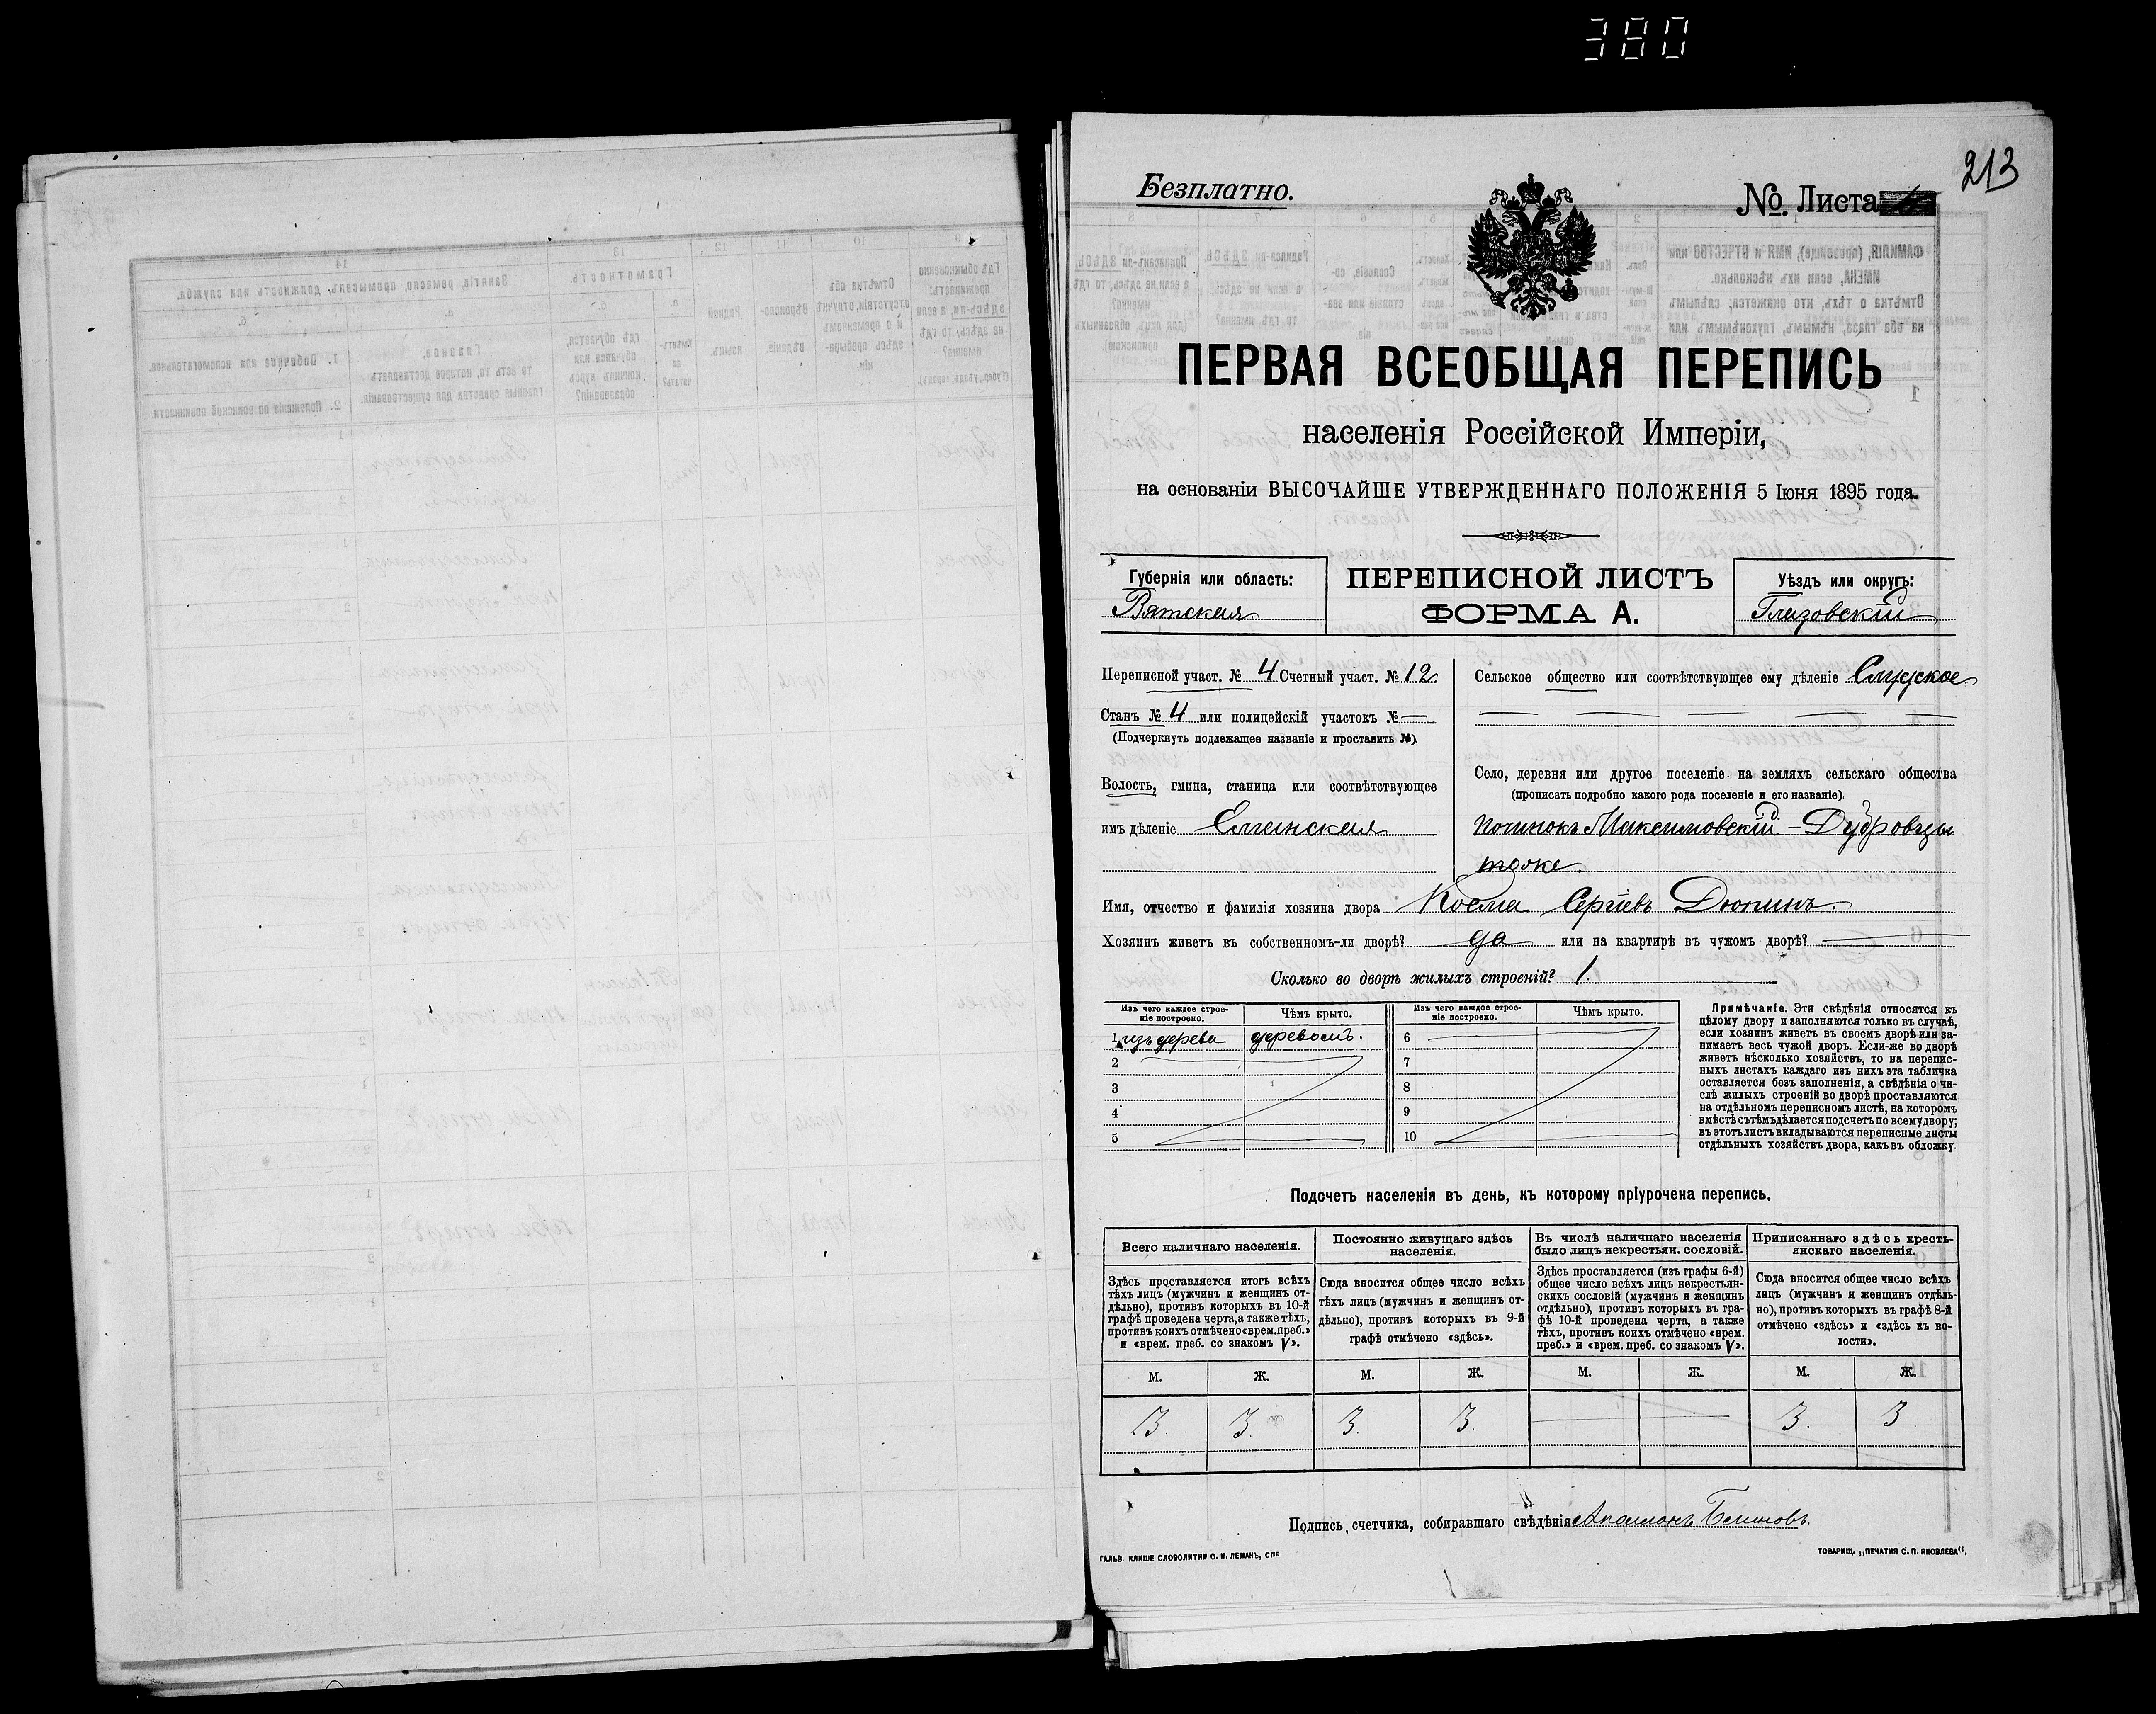 380
213
Безплатно.
№ Листа
ПЕРВАЯ ВСЕОБЩАЯ ПЕРЕПИСЬ
населенія Россійской Имперіи,
на основаніи ВЫСОЧАЙШЕ УТВЕРЖДЕННАГО ПОЛОЖЕНІЯ 5 Іюня 1895 года.
Губернія или область:
Вятская
ПЕРЕПИСНОЙ ЛИСТЪ
ФОРМА А.
Уѣздъ или округъ:
Глазовскій
Переписной участ. № 4 Счетный участ. № 12.
Станъ № 4 или полицейскій участокъ № —
(Подчеркнуть подлежащее названіе и проставить №).
Волость, гмина, станица или соотвѣтствующее
имъ дѣленіе Елганская
Сельское общество или соотвѣтствующее ему дѣленіе
Село, деревня или другое поселеніе на земляхъ сельскаго общества
(прописать подробно какого рода поселеніе и его названіе).
починокъ Максимовскій - Дубровцы
тоже.
Имя, отчество и фамилія хозяина двора Косма Сергіевъ Дюпинъ.
Хозяинъ живетъ въ собственномъ-ли дворѣ? да или на квартирѣ въ чужомъ дворѣ? —
Сколько во дворѣ жилыхъ строеній? 1.
Изъ чего каждое строе-
ніе построено.
Чѣмъ крыто.
Изъ чего каждое строе-
ніе построено.
Чѣмъ крыто.
1 изъ дерева деревомъ. 6
2 7
3 8
4 9
5 10
Примѣчаніе. Эти свѣдѣнія относятся къ
цѣлому двору и заполняются только въ случаѣ,
если хозяинъ живетъ въ своемъ дворѣ или за-
нимаетъ весь чужой дворъ. Если-же во дворѣ
живетъ нѣсколько хозяйствъ, то на перепис-
ныхъ листахъ каждаго изъ нихъ эта табличка
оставляется безъ заполненія, а свѣдѣнія о чи-
слѣ жилыхъ строеній во дворѣ проставляются
на отдѣльномъ переписномъ листѣ, на которомъ
вмѣстѣ съ тѣмъ дѣлается подсчетъ по всему двору;
въ этотъ листъ вкладываются переписные листы
отдѣльныхъ хозяйствъ двора, какъ въ обложку.
Подсчетъ населенія въ день, къ которому пріурочена перепись.
Всего наличнаго населенія.
Постоянно живущаго здѣсь
населенія.
Въ числѣ наличнаго населенія
было лицъ некрестьян. сословій.
Приписаннаго здѣсь кресть-
янскаго населенія.
Здѣсь проставляется итогъ всѣхъ
тѣхъ лицъ (мужчинъ и женщинъ от-
дѣльно), противъ которыхъ въ 10-й
графѣ проведена черта, а также тѣхъ,
противъ коихъ отмѣчено «врем. преб.»
и «врем. преб. со знакомъ V».
Сюда вносится общее число всѣхъ
тѣхъ лицъ (мужчинъ и женщинъ от-
дѣльно), противъ которыхъ въ 9-й
графѣ отмѣчено «здѣсь».
Здѣсь проставляется (изъ графы 6-й)
общее число всѣхъ лицъ некрестьян-
скихъ сословій (мужчинъ и женщинъ
отдѣльно), противъ которыхъ въ гра-
фѣ 10-й проведена черта, а также
тѣхъ, противъ коихъ отмѣчено «врем.
преб.» и «врем. преб. со знакомъ V».
Сюда вносится общее число всѣхъ
лицъ (мужчинъ и женщинъ отдѣль-
но), противъ которыхъ въ графѣ 8-й
отмѣчено «здѣсь» и «здѣсь въ во-
лости».
М. Ж. М. Ж. М. Ж. М. Ж.
3. 3. 3. 3. — — 3. 3.
Подпись счетчика, собиравшаго свѣдѣнія Аполлонъ
ГАЛЬВ. КЛИШЕ СЛОВОЛИТНИ О. И. ЛЕМАНЪ, СПБ
ТОВАРИЩ. „ПЕЧАТНЯ С. П. ЯКОВЛЕВА“.